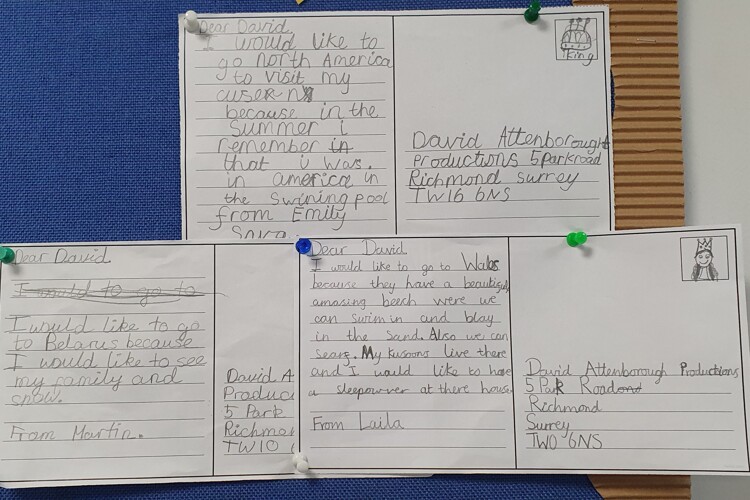 Dear David
I would like to
go north America
to visit my
cusern
because in the
Summer i
remember in
that i was.
in america in
the swiningpool
from Emily
king
David Attenborough
productions 5parkroad
Richmond surrey
TW16 6NS
Dear David
I would to go to
I would like to go
to Belarus because
I would like to see
my family and
snow.
From Martin.
David A
Produc
5 Park
Richmo
TW10 6
Dear David
I would like to go to Wales
because they have a beautiful
amasing beech were we
can swim in and blay
in the Sand. Also we can
My kusoons live there
and I would like to have
a sleepowver at there house
From Laila
David Attenborough Productions
5 Park Road
Richmond
Surrey
TW0 6NS